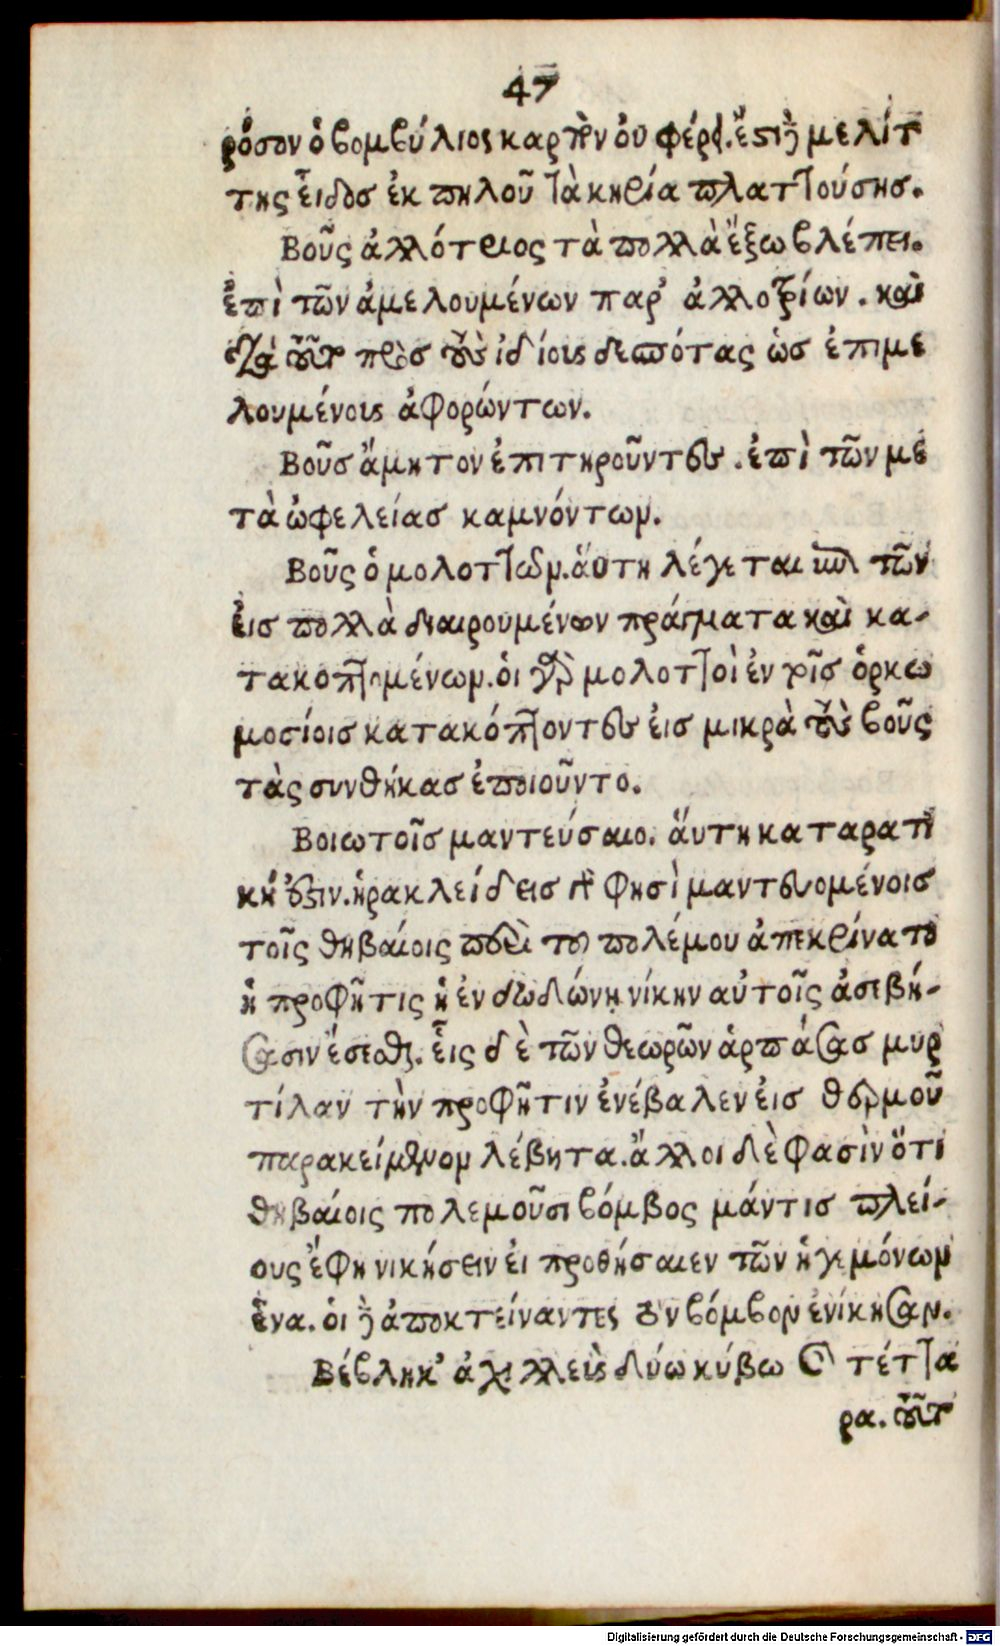 47
ρόσον ὁ βομβύλιος καρπὸν οὐ φέρει. ἔστι δὲ μελίτ
της εἶδοσ ἐκ πηλοῦ τὰ κηρία πλαττούσησ.
Βοῦς ἀλλότριος τὰ πολλὰ ἔξω βλέπει.
ἐπὶ τῶν ἀμελουμένων παρ' ἀλλοτρίων. καὶ
διὰ τοῦτο πρὸσ τοὺς ἰδίους δεσπότας ὡσ ἐπιμε
λουμένους ἀφορώντων.
Βοῦσ ἄμητον ἐπιτηροῦντες. ἐπὶ τῶν με
τὰ ὠφελείασ καμνόντων.
Βοῦς ὁ μολοττῶν. ἅυτη λέγεται ἐπὶ τῶν
ἐισ πολλὰ διαιρουμένων πράγματα καὶ κα-
τακοπτομένων. ὁι γὰρ μολοττοὶ ἐν τοῖσ ὁρκω
μοσίοισ κατακόπτοντες ἐισ μικρὰ τοὺς βοῦς
τὰς συνθήκασ ἐποιοῦντο.
Βοιωτοῖσ μαντεύσαιο. ἅυτη καταρατι
κή ἐστιν. ἡρακλείδεισ γὰρ φησὶ μαντευομένοισ
τοῖς θηβαίοις περὶ του πολέμου ἀπεκρίνατο
ἡ προφῆτις ἡ ἐν δωδώνῃ νίκην αὐτοῖς ἀσεβή-
σασιν ἔσεσθαι. εἷις δὲ τῶν θεωρῶν ἁρπάσασ μυρ
τίλαν τὴν προφῆτιν ἐνέβαλεν ἐισ θερμοῦ
παρακείμενον λέβητα. ἄλλοι δὲ φασὶν ὅτι
θηβαίοις πολεμοῦσι βόμβος μάντισ πλεί-
ους ἔφη νικήσειν ἐι προθήσαιεν τῶν ἡγεμόνων
ἕνα. ὁι δὲ ἀποκτείναντες τὸν βόμβον ἐνίκησαν.
Βέβληκ' ἀχιλλεὺς δύω κύβω καὶ τέττα
ρα. τοῦτο
Digitalisierung gefördert durch die Deutsche Forschungsgemeinschaft - DFG